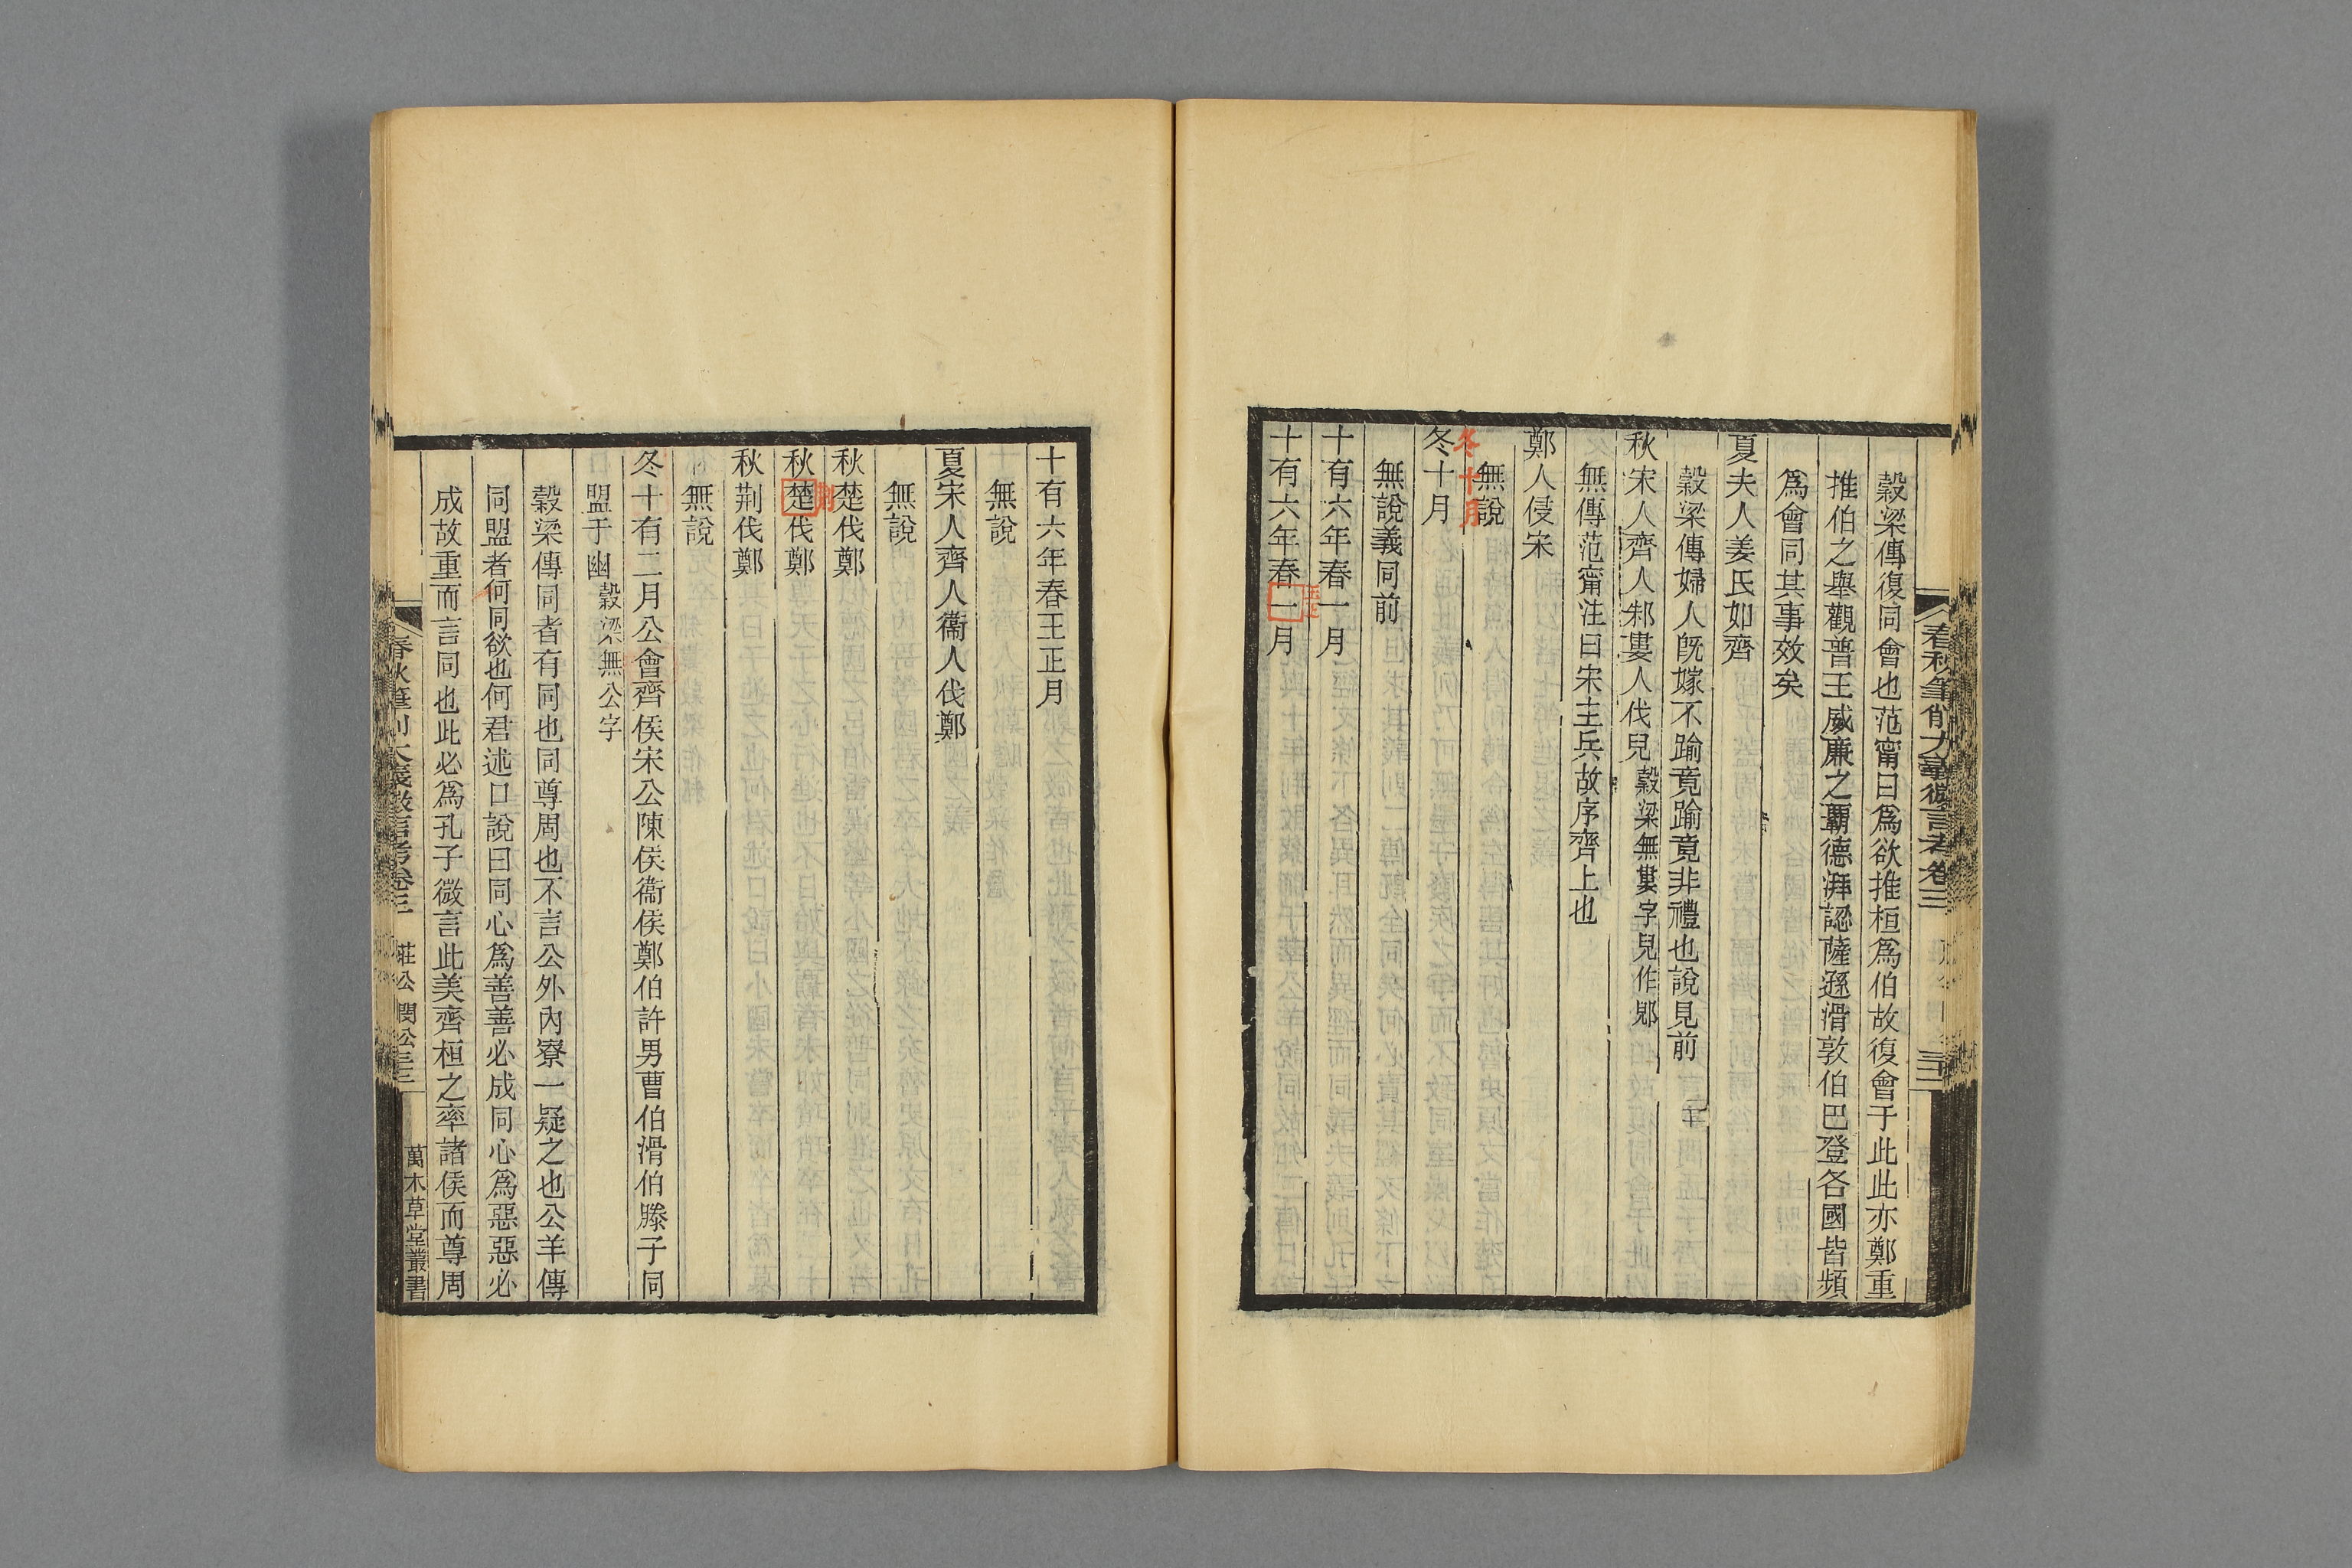 春秋筆削大義微言考卷三
三二
穀梁傳復同會也范甯曰爲欲推桓爲伯故復會于此此亦鄭重
推伯之舉觀普王威廉之霸德湃認薩遜滑敦伯巴登各國皆頻
爲會同其事效矣
夏夫人姜氏如齊
穀梁傳婦人既嫁不踰竟踰竟非禮也說見前
秋宋人齊人邾婁人伐兒穀梁無婁字兒作郳
無傳范甯注曰宋主兵故序齊上也
鄭人侵宋
無說
冬十月
冬十月
無說義同前
十有六年春一月
十有六年春一月
十有六年春王正月
無說
夏宋人齊人衞人伐鄭
無說
秋楚伐鄭
荆
秋楚伐鄭
秋荆伐鄭
無說
冬十有二月公會齊侯宋公陳侯衞侯鄭伯許男曹伯滑伯滕子同
盟于幽穀梁無公字
穀梁傳同者有同也同尊周也不言公外內寮一疑之也公羊傳
同盟者何同欲也何君述口說曰同心爲善善必成同心爲惡惡必
成故重而言同也此必爲孔子微言此美齊桓之率諸侯而尊周
春秋筆削大義微言考卷三 莊公 閔公 三三 萬木草堂叢書